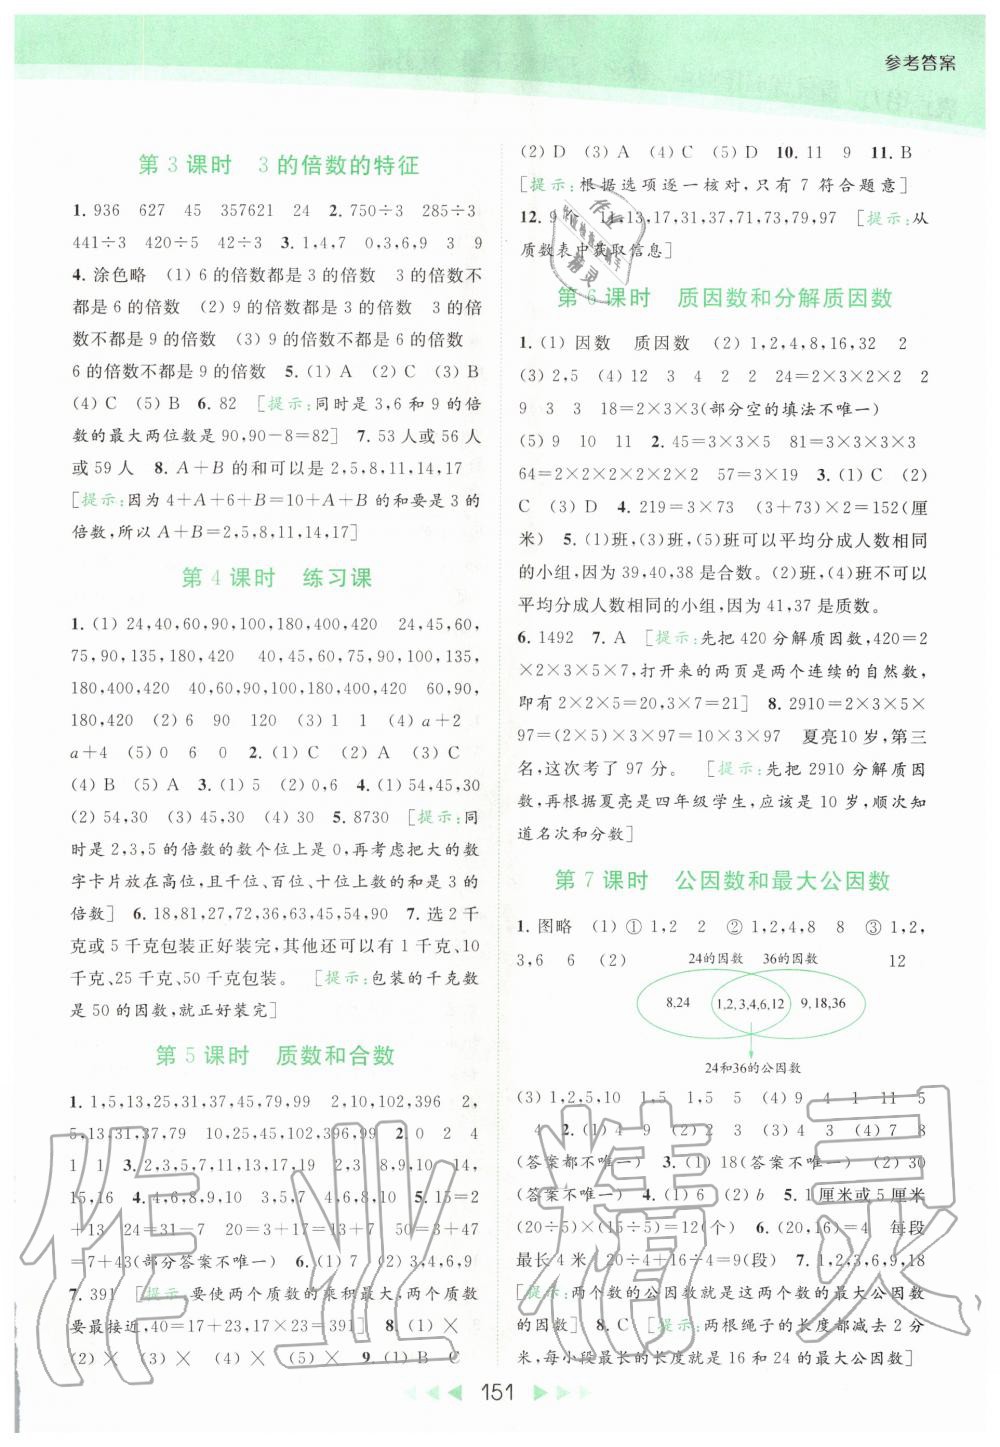 参考答案
第3课时 3的倍数的特征
1. 936 627 45 357621 24 2. 750÷3 285÷3
441÷3 420÷5 42÷3 3. 1,4,7 0,3,6,9 3 9
4. 涂色略 (1) 6的倍数都是3的倍数 3的倍数不
都是6的倍数 (2) 9的倍数都是3的倍数 3的倍
数不都是9的倍数 (3) 9的倍数不都是6的倍数
6的倍数不都是9的倍数 5. (1) A (2) C (3) B
(4) C (5) B 6. 82 [提示:同时是3,6和9的倍
数的最大两位数是90,90-8=82] 7. 53人或56人
或59人 8. A+B的和可以是2,5,8,11,14,17
[提示:因为4+A+6+B=10+A+B的和要是3的
倍数,所以A+B=2,5,8,11,14,17]
第4课时 练习课
1. (1) 24,40,60,90,100,180,400,420 24,45,60,
75,90,135,180,420 40,45,60,75,90,100,135,
180,400,420 40,60,90,100,180,400,420 60,90,
180,420 (2) 6 90 120 (3) 1 1 (4) a+2
a+4 (5) 0 6 0 2. (1) C (2) A (3) C
(4) B (5) A 3. (1) 5 (2) 0,6 4. (1) 54,45,30
(2) 54,30 (3) 45,30 (4) 30 5. 8730 [提示:同
时是2,3,5的倍数的数个位上是0,再考虑把大的数
字卡片放在高位,且千位、百位、十位上数的和是3的
倍数] 6. 18,81,27,72,36,63,45,54,90 7. 选2千
克或5千克包装正好装完,其他还可以有1千克、10
千克、25千克、50千克包装。 [提示:包装的千克数
是50的因数,就正好装完]
第5课时 质数和合数
1. 1,5,13,25,31,37,45,79,99 2,10,102,396 2,
5,13,31,37,79 10,25,45,102,99,396 2. 0 2 4
1 1 3. 2,3,5,7,11,13 4,8,9,10 14,
15,16 4. 4,6,8,9,10 3,6,9 5. 15=2
+13 24=31-7 20=3+17=13+7 50=3+47
=7+43(部分答案不唯一) 6. (1) 7 (2) 3,4,6,9
7. 391 [提示:要使两个质数的乘积最大,两个质数
要最接近,40=17+23,17×23=391] 8. (1) ×
(2) × (3) × (4) × (5) × 9. (1) B C
(2) D (3) A (4) C (5) D 10. 11 9 11. B
[提示:根据选项逐一核对,只有7符合题意]
12. 9 11,13,17,31,37,71,73,79,97 [提示:从
质数表中获取信息]
第6课时 质因数和分解质因数
1. (1) 因数 质因数 (2) 1,2,4,8,16,32 2
(3) 2,5 (4) 12 3 4 2 2 24=2×3×2×2 2
9 3 3 18=2×3×3(部分空的填法不唯一)
(5) 9 10 11 2. 45=3×3×5 81=3×3×3×3
64=2×2×2×2×2×2 57=3×19 3. (1) C (2)
C (3) D 4. 219=3×73 (3+73)×2=152(厘
米) 5. (1)班,(3)班,(5)班可以平均分成人数相同
的小组,因为39,40,38是合数。(2)班,(4)班不可以
平均分成人数相同的小组,因为41,37是质数。
6. 1492 7. A [提示:先把420分解质因数,420=2
×2×3×5×7,打开来的两页是两个连续的自然数,
即有2×2×5=20,3×7=21] 8. 2910=2×3×5×
97=(2×5)×3×97=10×3×97 夏亮10岁,第三
名,这次考了97分。 [提示:先把2910分解质因
数,再根据夏亮是四年级学生,应该是10岁,顺次知
道名次和分数]
第7课时 公因数和最大公因数
1. 图略 (1) ① 1,2 2 ② 1,2,4,8 8 ③ 1,2,
3,6 6 (2) 24的因数 36的因数 12
8,24 1,2,3,4,6,12 9,18,36
24和36的公因数
(3) 1,2,5,10 1,5 5 (4) 9 4 1 11 5
4 2. (1) 4 9 (2) 2 3 (3) 4 (4) 7 8
(答案都不唯一) 3. (1) 18(答案不唯一) (2) 30
(答案不唯一) 4. (1) 6 (2) b 5. 1厘米或5厘米
(20÷5)×(15÷5)=12(个) 6. (20,16)=4 每段
最长4米 20÷4+16÷4=9(段) 7. 1,2,3,6,9,18
[提示:两个数的公因数就是这两个数的最大公因数
的因数] 8. C [提示:两根绳子的长度都减去2分
米,每小段最长的长度就是16和24的最大公因数]
151
作业精灵